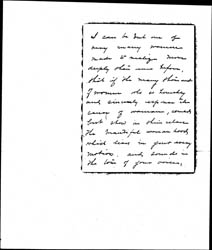 I can be but one of
many many women
made to realize more
deeply than ever before,
that if the many thousand
of women who so
and sincerely espouse the
cause of woman, could
but show in their
the beautiful woman hood
which is in your every
motion, and sounds in
the tone of your voice,